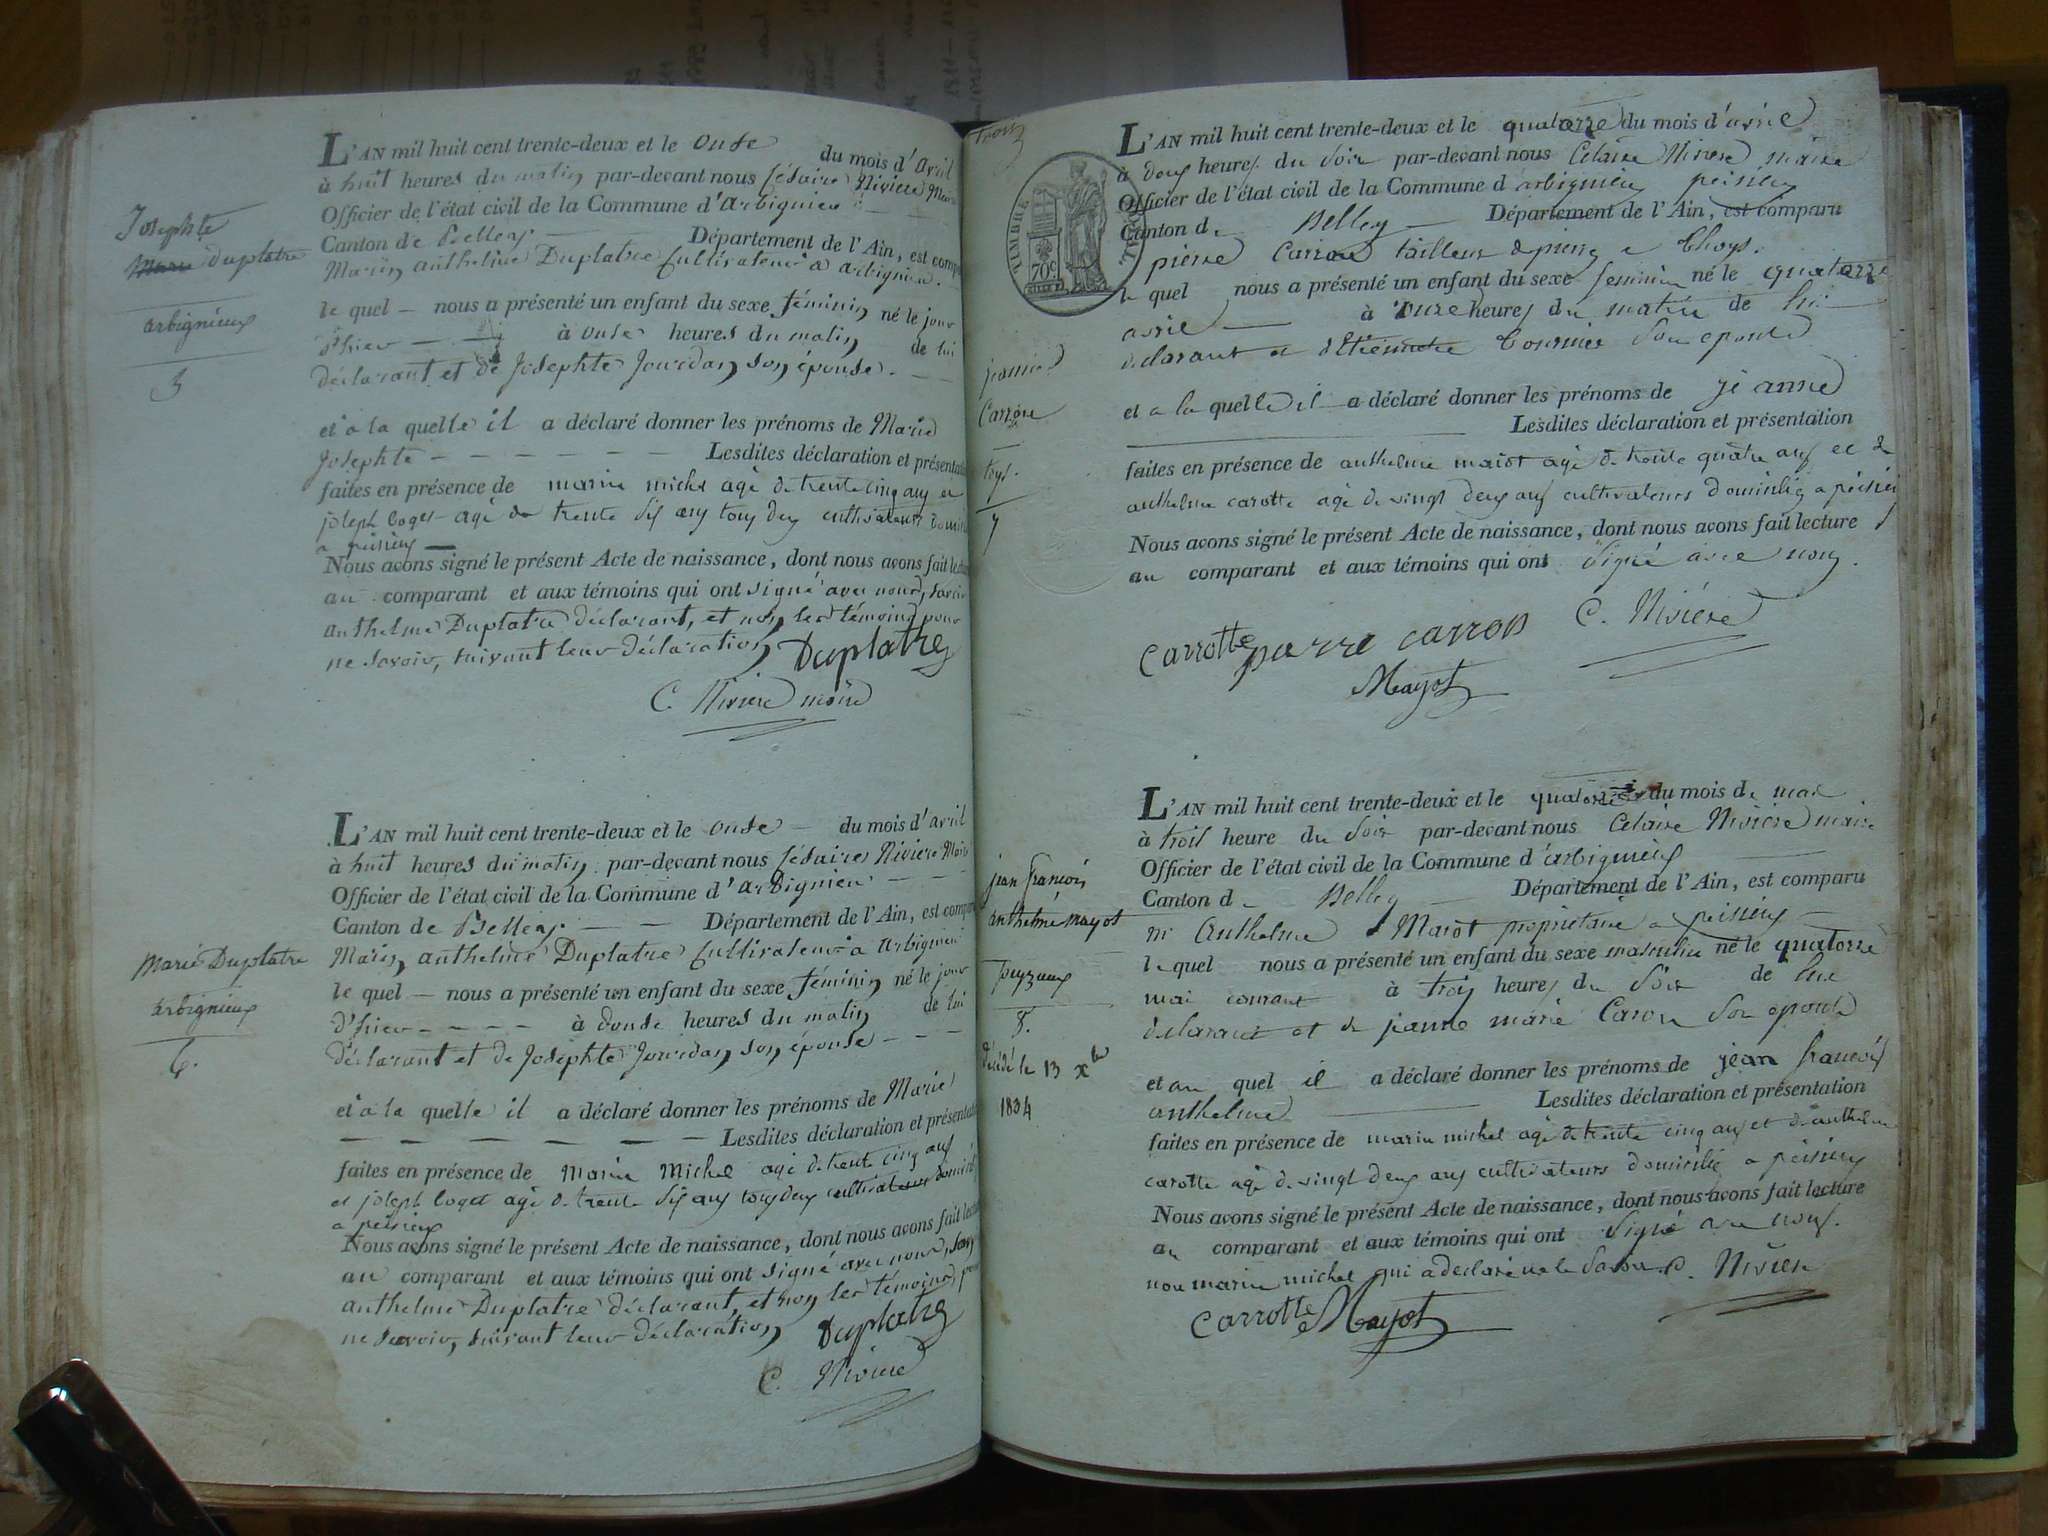 Josephte
Marie Duplatre
arbignieux
5
L'AN mil huit cent trente-deux et le onse du mois d'avril
à huit heures du matin par-devant nous Césaire Nivière Maire
Officier de l'état civil de la Commune d'arbignieu
Canton de Belley Département de l'Ain, est comparu
Marin anthelme Duplatre Cultivateur à arbignieu.
le quel nous a présenté un enfant du sexe féminin né le jour
d'hier à onse heures du matin de lui
déclarant et de Josephte Jourdan son épouse.
et à la quelle il a déclaré donner les prénoms de Marie
Josephte Lesdites déclaration et présentation
faites en présence de marin michel agé de trente cinq ans et
joseph loget agé de trente six ans tous deux cultivateurs domicilié
a peisieu
Nous avons signé le présent Acte de naissance, dont nous avons fait lecture
au comparant et aux témoins qui ont signé avec nous, savoir
anthelme Duplatre déclarant, et non les témoins pour
ne savoir, suivant leur déclaration Duplatre
C. Nivière maire
Marie Duplatre
arbignieux
6.
L'AN mil huit cent trente-deux et le onse du mois d'avril
à huit heures du matin par-devant nous Césaire Nivière Maire
Officier de l'état civil de la Commune d'arbignieu
Canton de Belley Département de l'Ain, est comparu
Marin anthelme Duplatre Cultivateur à arbignieu
le quel nous a présenté un enfant du sexe féminin né le jour
d'hier à douse heures du matin de lui
déclarant et de Josephte Jourdan son épouse
et à la quelle il a déclaré donner les prénoms de Marie
Lesdites déclaration et présentation
faites en présence de Marin Michel agé de trente cinq ans
et joseph loget agé de trente six ans tous deux cultivateurs domicilié
a peisieu
Nous avons signé le présent Acte de naissance, dont nous avons fait lecture
au comparant et aux témoins qui ont signé avec nous, savoir
anthelme Duplatre déclarant, et non les témoins pour
ne savoir, suivant leur déclaration Duplatre
C. Nivière
trois
TIMBRE
70c
L'AN mil huit cent trente-deux et le quatorze du mois d'avril
à deux heures du soir par-devant nous Cesaire Nivière maire
Officier de l'état civil de la Commune d'arbignieu peisieu
Canton de Belley Département de l'Ain, est comparu
pierre Carron tailleur de pierre a Thoys.
le quel nous a présenté un enfant du sexe feminin né le quatorze
avril à onze heures du matin de lui
declarant et d'Etiennette Tournier son epouse
et a la quelle il a déclaré donner les prénoms de jeanne
Lesdites déclaration et présentation
faites en présence de anthelme maiot agé de trente quatre ans et de
anthelme carotte agé de vingt deux ans cultivateurs domicilié a peisieu
Nous avons signé le présent Acte de naissance, dont nous avons fait lecture
au comparant et aux témoins qui ont signé avec nous.
Carrotte pierre carron C. Nivière
Mayot
Carrone
7
L'AN mil huit cent trente-deux et le quatorze du mois de mai
à trois heure du soir par-devant nous Cesaire Nivière maire
Officier de l'état civil de la Commune d'arbignieu
Canton de Belley Département de l'Ain, est comparu
mr Anthelme Maiot proprietaire a peisieu
le quel nous a présenté un enfant du sexe masculin né le quatorze
mai courant à trois heures du soir de lui
declarant et de jeanne marie Caron son epouse
et au quel il a déclaré donner les prénoms de jean francois
anthelme Lesdites déclaration et présentation
faites en présence de marin michel agé de trente cinq ans et de anthelme
carotte agé de vingt deux ans cultivateurs domicilié a peisieu
Nous avons signé le présent Acte de naissance, dont nous avons fait lecture
au comparant et aux témoins qui ont signé avec nous.
non marin michel qui a declaré ne le savoir. C. Nivière
Carrotte Mayot
jean françois
anthelme mayot
peyzieux
8.
décédé le 13 xbre
1834